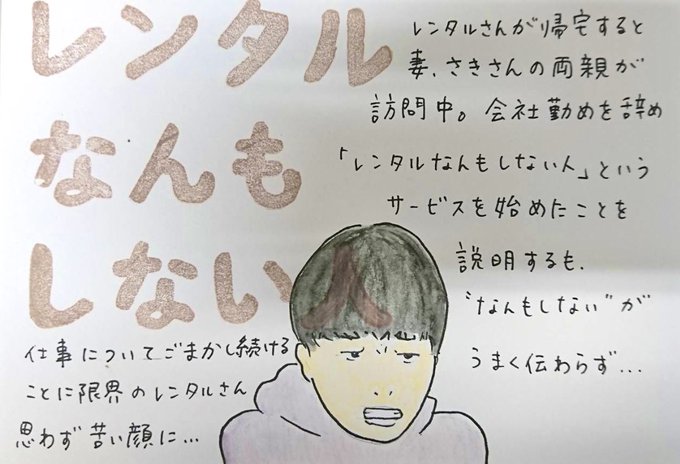 レンタル
なんも
しない人
レンタルさんが帰宅すると
妻、さきさんの両親が
訪問中。会社勤めを辞め
「レンタルなんもしない人」という
サービスを始めたことを
説明するも、
"なんもしない"が
うまく伝わらず…
仕事についてごまかし続ける
ことに限界のレンタルさん
思わず苦い顔に…